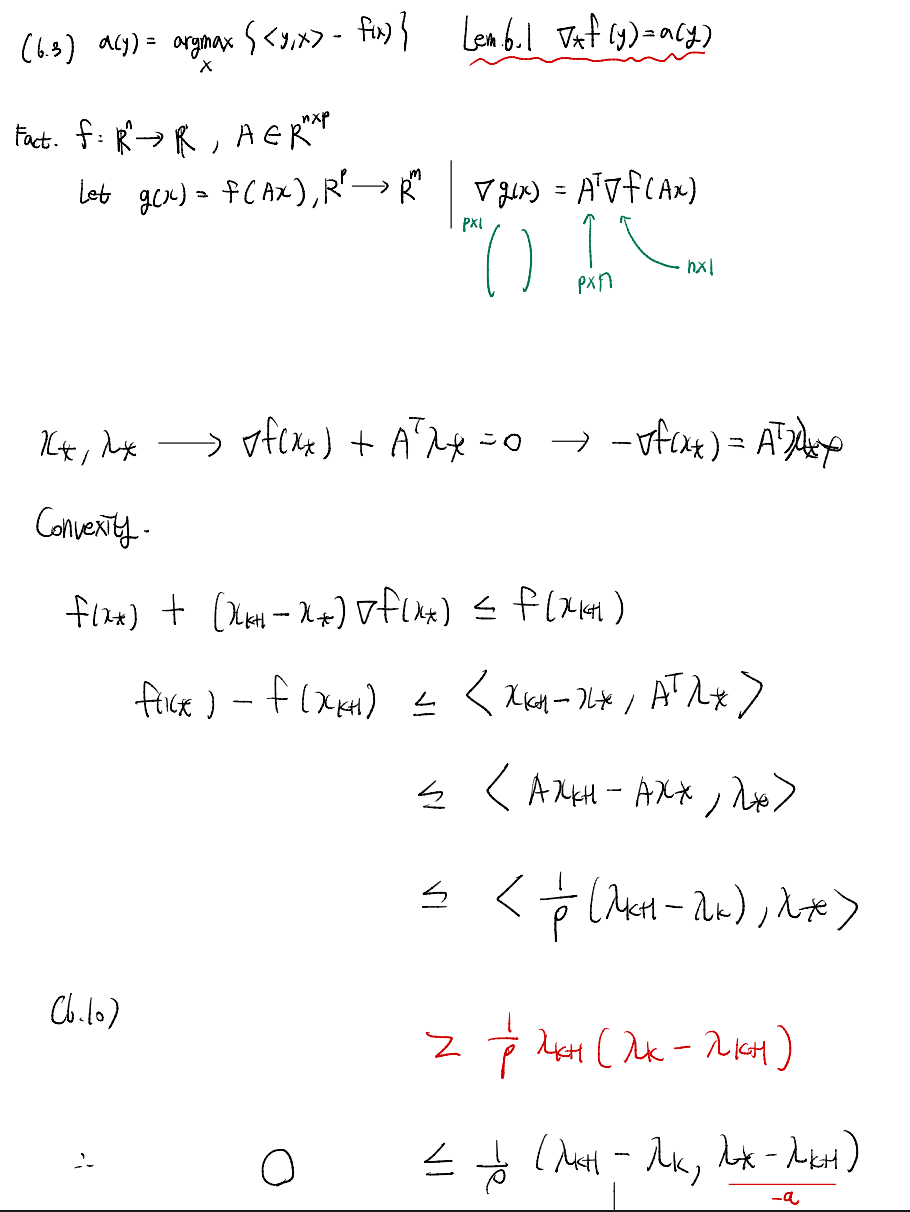 (6.3) a(y) = argmax_x { <y,x> - f(x) } Lem 6.1 ∇_* f(y) = a(y)
Fact. f: R^n → R , A ∈ R^{n×p}
Let g(x) = f(Ax), R^p → R^m | ∇g(x) = A^T ∇f(Ax)
p×1 ( ) p×n n×1
x_*, λ_* → ∇f(x_*) + A^T λ_* = 0 → -∇f(x_*) = A^T λ_*
Convexity.
f(x_*) + (x_{k+1} - x_*) ∇f(x_*) ≤ f(x_{k+1})
f(x_*) - f(x_{k+1}) ≤ < x_{k+1} - x_*, A^T λ_* >
≤ < Ax_{k+1} - Ax_*, λ_* >
≤ < 1/ρ (λ_{k+1} - λ_k), λ_* >
(6.10)
≥ 1/ρ λ_{k+1} (λ_k - λ_{k+1})
∴ 0 ≤ 1/ρ (λ_{k+1} - λ_k, λ_* - λ_{k+1})
-a